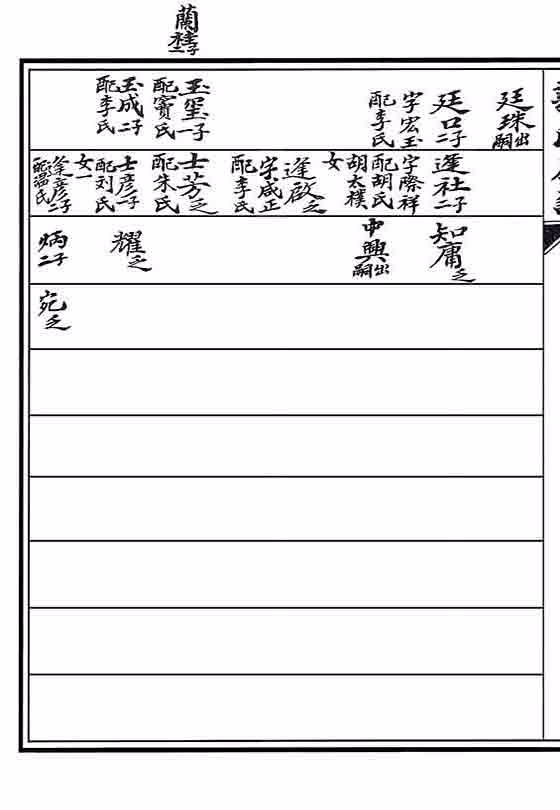 蘭 二子
廷珠 出嗣
廷口 二子
字宏玉
配李氏
玉璽 一子
配竇氏
玉成 二子
配李氏
逢社 二子
字際祥
配胡氏
胡太樸
女
逢啟 乏
字咸正
配李氏
士芳 乏
配朱氏
士彥 二子
配刘氏
女一
彥 二子
配温氏
知庸 乏
中興 出嗣
耀 乏
炳 二子
宛 乏